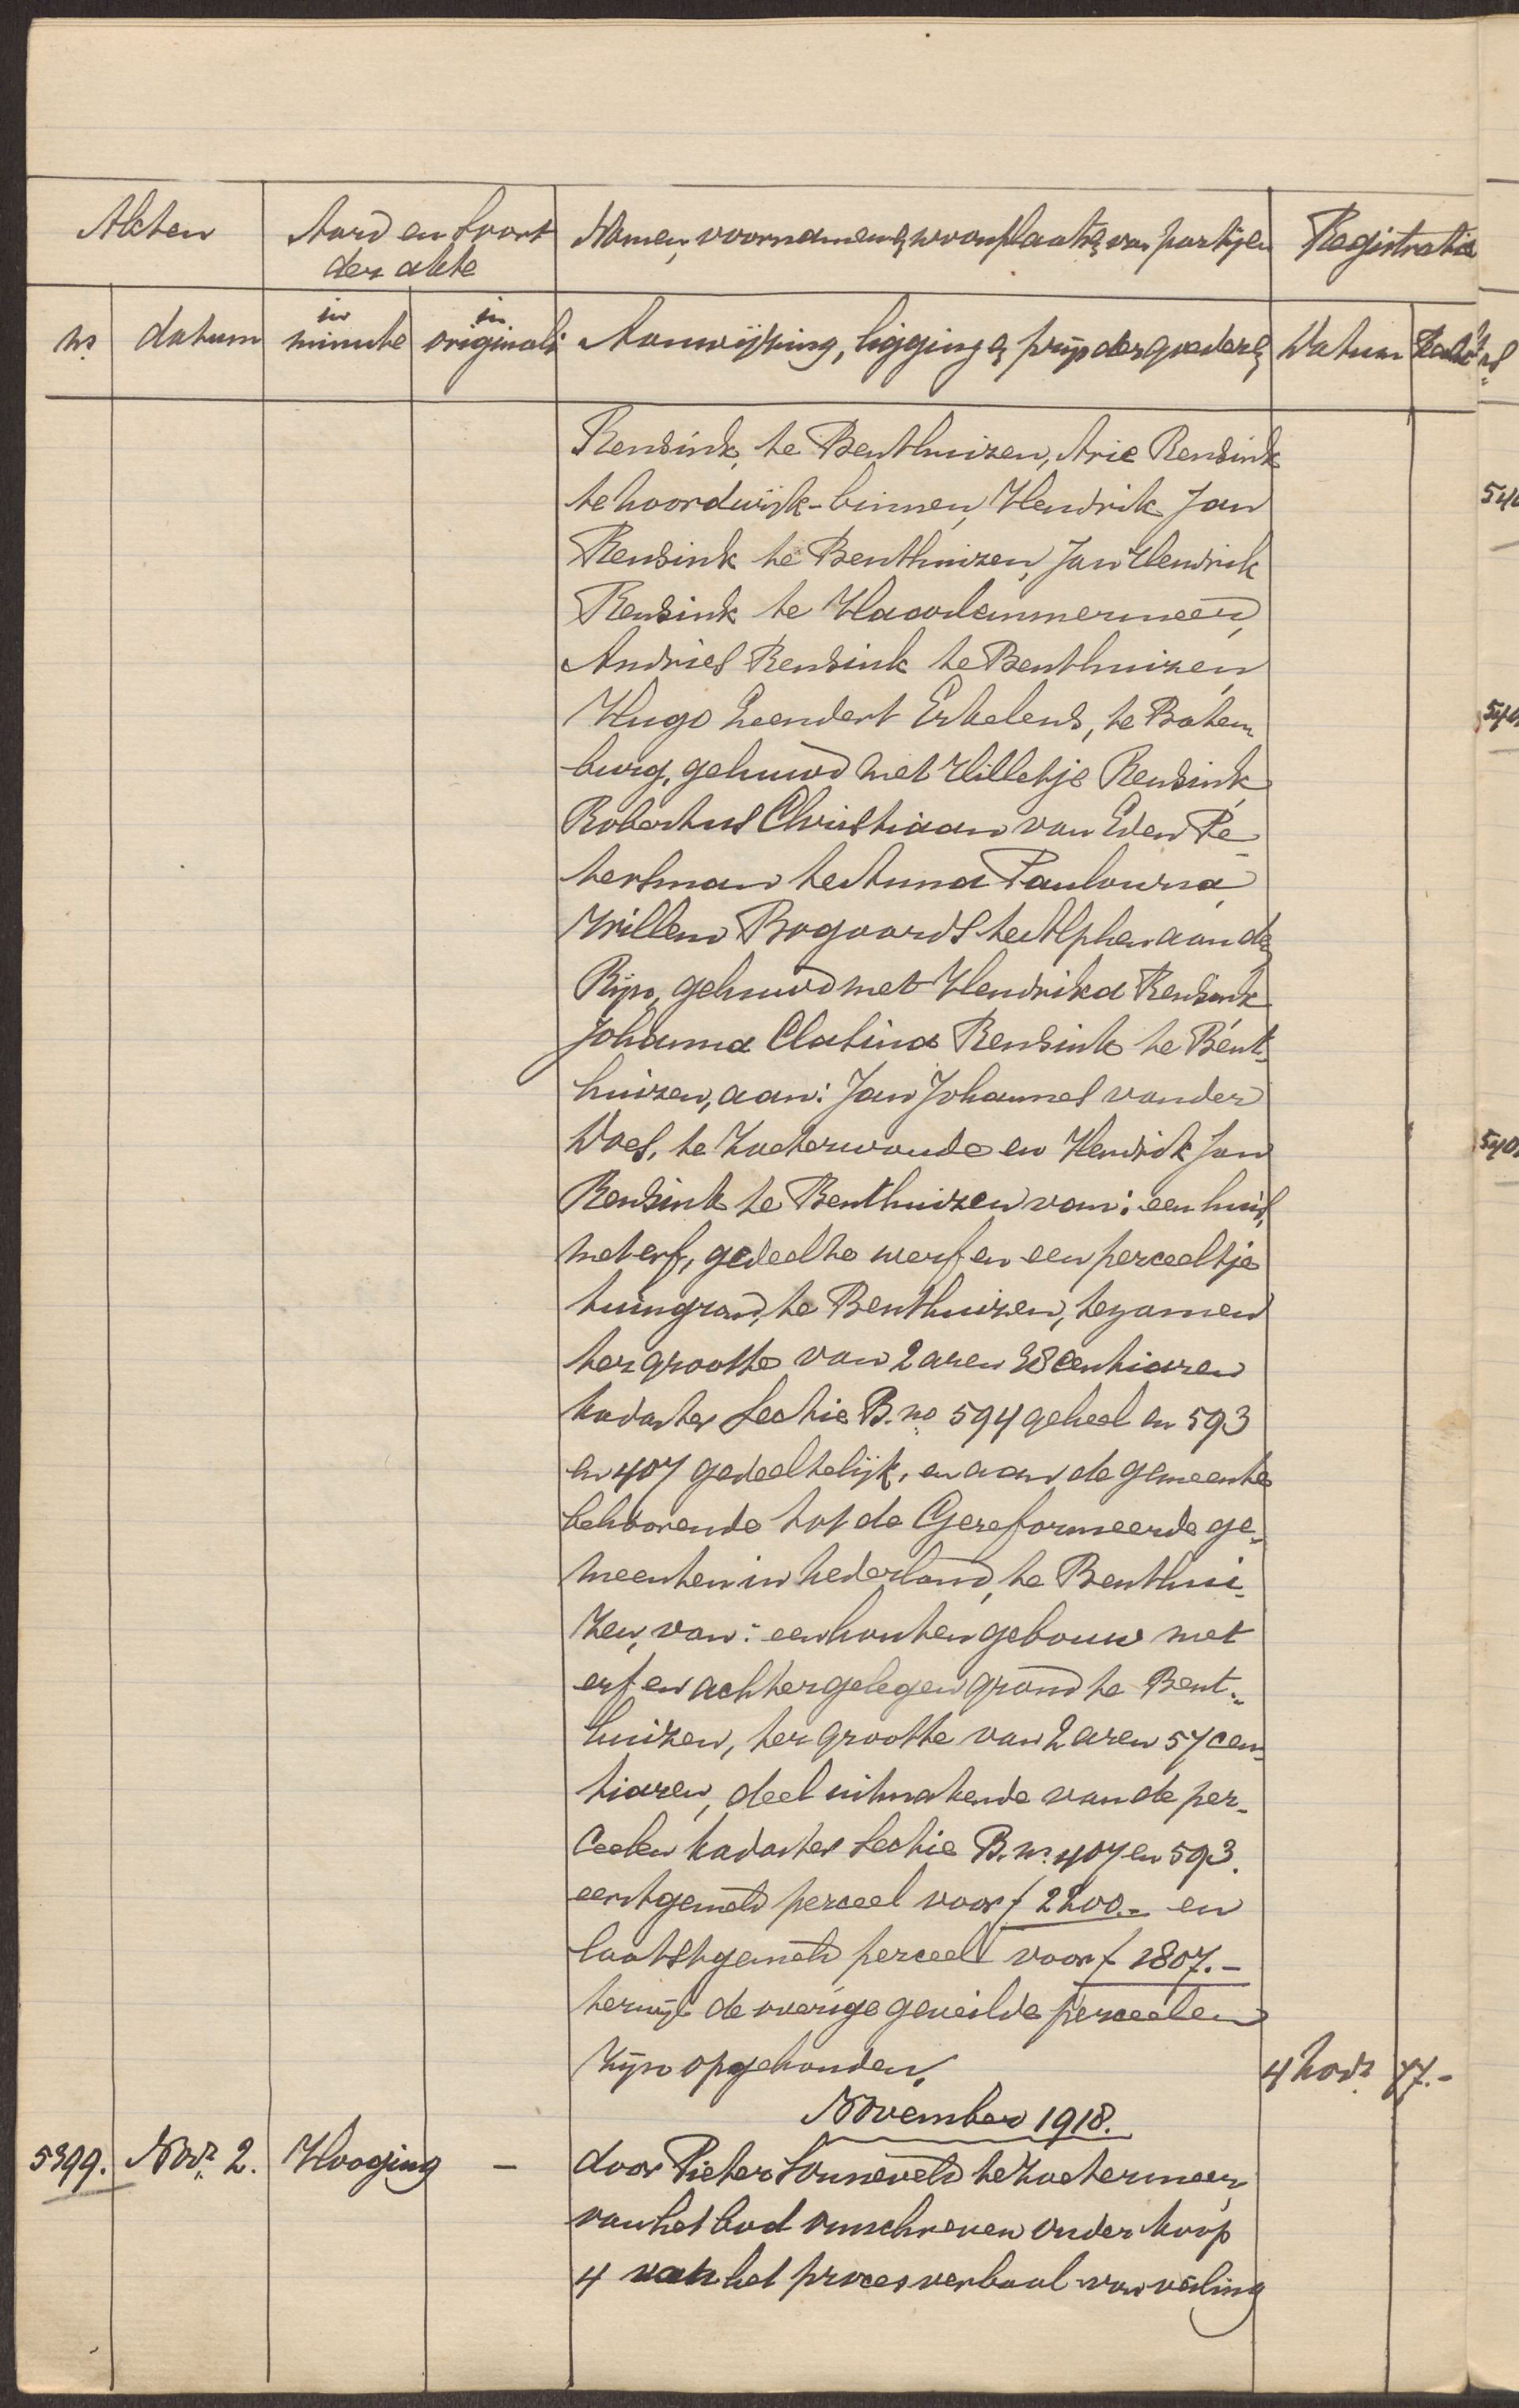 Akten
Aard en soort
der akte
Namen, voornamen & woonplaats & van partijen
Registratie
no.
datum
in
minute
in
originali
Aanwijzing, ligging & prijs der goederen
Datum
Rensink, te Benthuizen, Arie Rensink
te Noordwijk-binnen, Hendrik Jan
Rensink te Benthuizen, Jan Hendrik
Rensink te Haarlemmermeer,
Andries Rensink te Benthuizen,
Hugo Leendert Erkelens, te Baten
burg, gehuwd met Hilletje Rensink,
Robertus Christiaan van Eden Pe-
tersman te Anna Paulowna,
Willem Bogaards te Alphen aan de
Rijn, gehuwd met Hendrika Rensink
Johanna Clasina Rensink te Bent-
huizen, aan: Jan Johannes van der
Does, te Zoeterwoude en Hendrik Jan
Rensink te Benthuizen van: een huis,
met erf, gedeelte werf en een perceeltje
tuingrond, te Benthuizen, tezamen
ter grootte van 2 aren 38 centiaren
kadaster Sectie B. no 594 geheel en 593
en 407 gedeeltelijk, en aan de gemeente
behoorende tot de Gereformeerde ge-
meenten in Nederland, te Benthui-
zen, van: een houten gebouw met
erf en achtergelegen grond te Bent-
huizen, ter grootte van 2 aren 57 cen-
tiaren, deel uitmakende van de per-
ceelen kadaster Sectie B. no. 407 en 593.
eerstgemeld perceel voor f 2200.- en
laatstgemeld perceel voor f 1807.-
terwijl de overige geveilde perceelen
zijn opgehouden.
4 Nov.
77.-
November 1918.
5399.
Nov. 2.
Hooging
-
door Pieter Sonneveld te Zoetermeer,
van het bod omschreven onder koop
4 van het proces verbaal van veiling